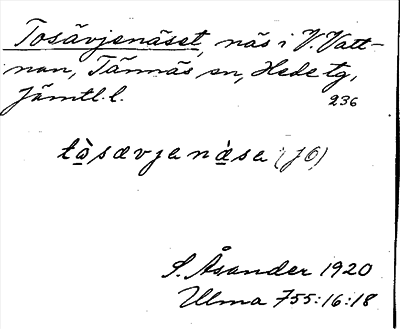 Tosävjenäset, näs i V. Vatt-
nan, Tännäs sn, Hede tg,
Jämtl. l. 236
tòsævjenæ̀sa (JO)
S. Åsander 1920
Ulma 755:16:18